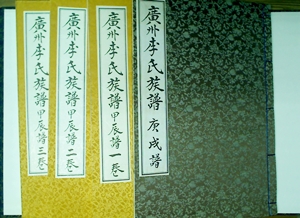 廣州李氏族譜 庚戍譜
廣州李氏族譜甲辰譜一卷
廣州李氏族譜甲辰譜二卷
廣州李氏族譜甲辰譜三卷